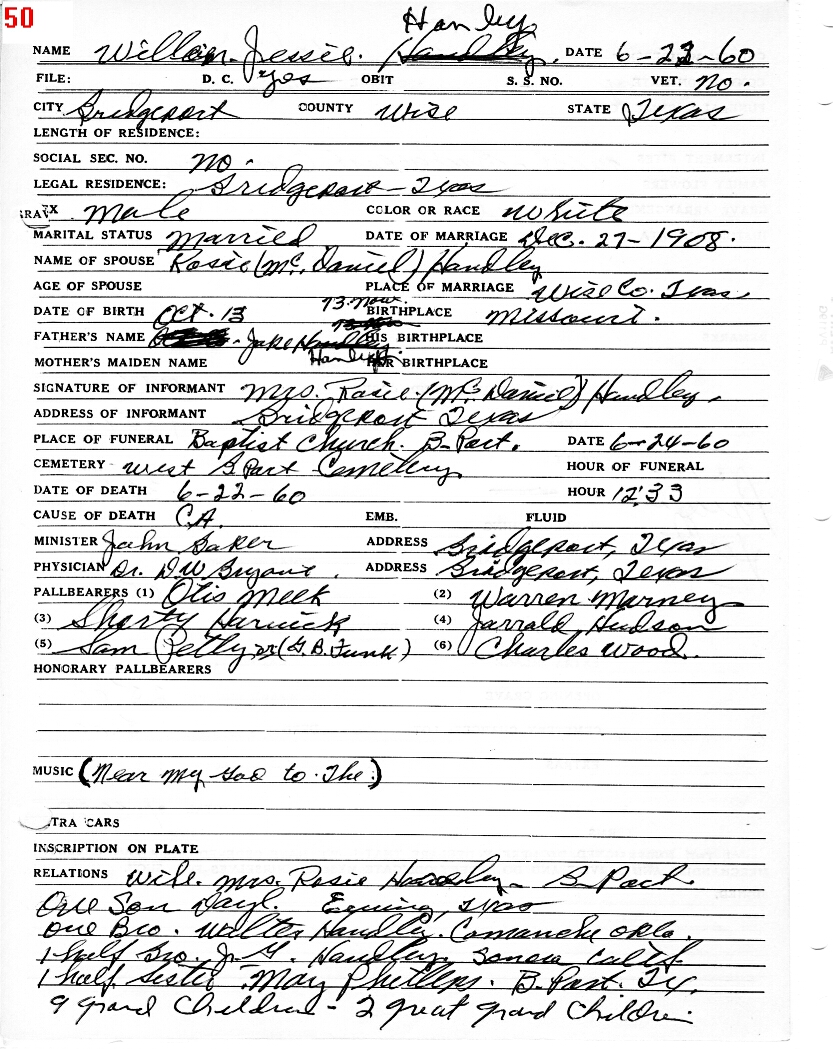 50
Hanley
NAME William. Jessie. Handley, DATE 6-22-60
FILE: D. C. yes OBIT S. S. NO. VET. no.
CITY Bridgeport COUNTY Wise STATE Texas
LENGTH OF RESIDENCE:
SOCIAL SEC. NO. no.
LEGAL RESIDENCE: Bridgeport - Texas
Male COLOR OR RACE White
MARITAL STATUS Married DATE OF MARRIAGE Dec. 27-1908.
NAME OF SPOUSE Rosie (Mc. Daniel) Handley
AGE OF SPOUSE PLACE OF MARRIAGE Wise Co. Texas
73-now.
DATE OF BIRTH Oct. 13 BIRTHPLACE Missouri.
FATHER'S NAME Jake Handley HIS BIRTHPLACE
Hanley
MOTHER'S MAIDEN NAME HER BIRTHPLACE
SIGNATURE OF INFORMANT Mrs. Rosie. (Mc Daniel) Handley.
ADDRESS OF INFORMANT Bridgeport Texas
PLACE OF FUNERAL Baptist Church. B-Port. DATE 6-24-60
CEMETERY West B Port Cemetery HOUR OF FUNERAL
DATE OF DEATH 6-22-60 HOUR 12:33
CAUSE OF DEATH C.A. EMB. FLUID
MINISTER John Baker ADDRESS Bridgeport, Texas
PHYSICIAN Dr. D W Bryant. ADDRESS Bridgeport, Texas
PALLBEARERS (1) Otis Meek (2) Warren Marney
(3) Shorty (4) Jarrald Hudson
(5) Sam Petty or (G. B. Funk) (6) Charles Wood.
HONORARY PALLBEARERS
MUSIC (Near My God to The.)
TRA CARS
INSCRIPTION ON PLATE
RELATIONS Wife. Mrs. Rosie Handley - B-Port.
One Son Texas
One Bro. Walter Handley. Comanche Okla.
1 half Bro. J. Handley, Sonora Calif.
1 half Sister May Phillips. B. Port. Tx.
9 grand Children - 2 great grand Children.